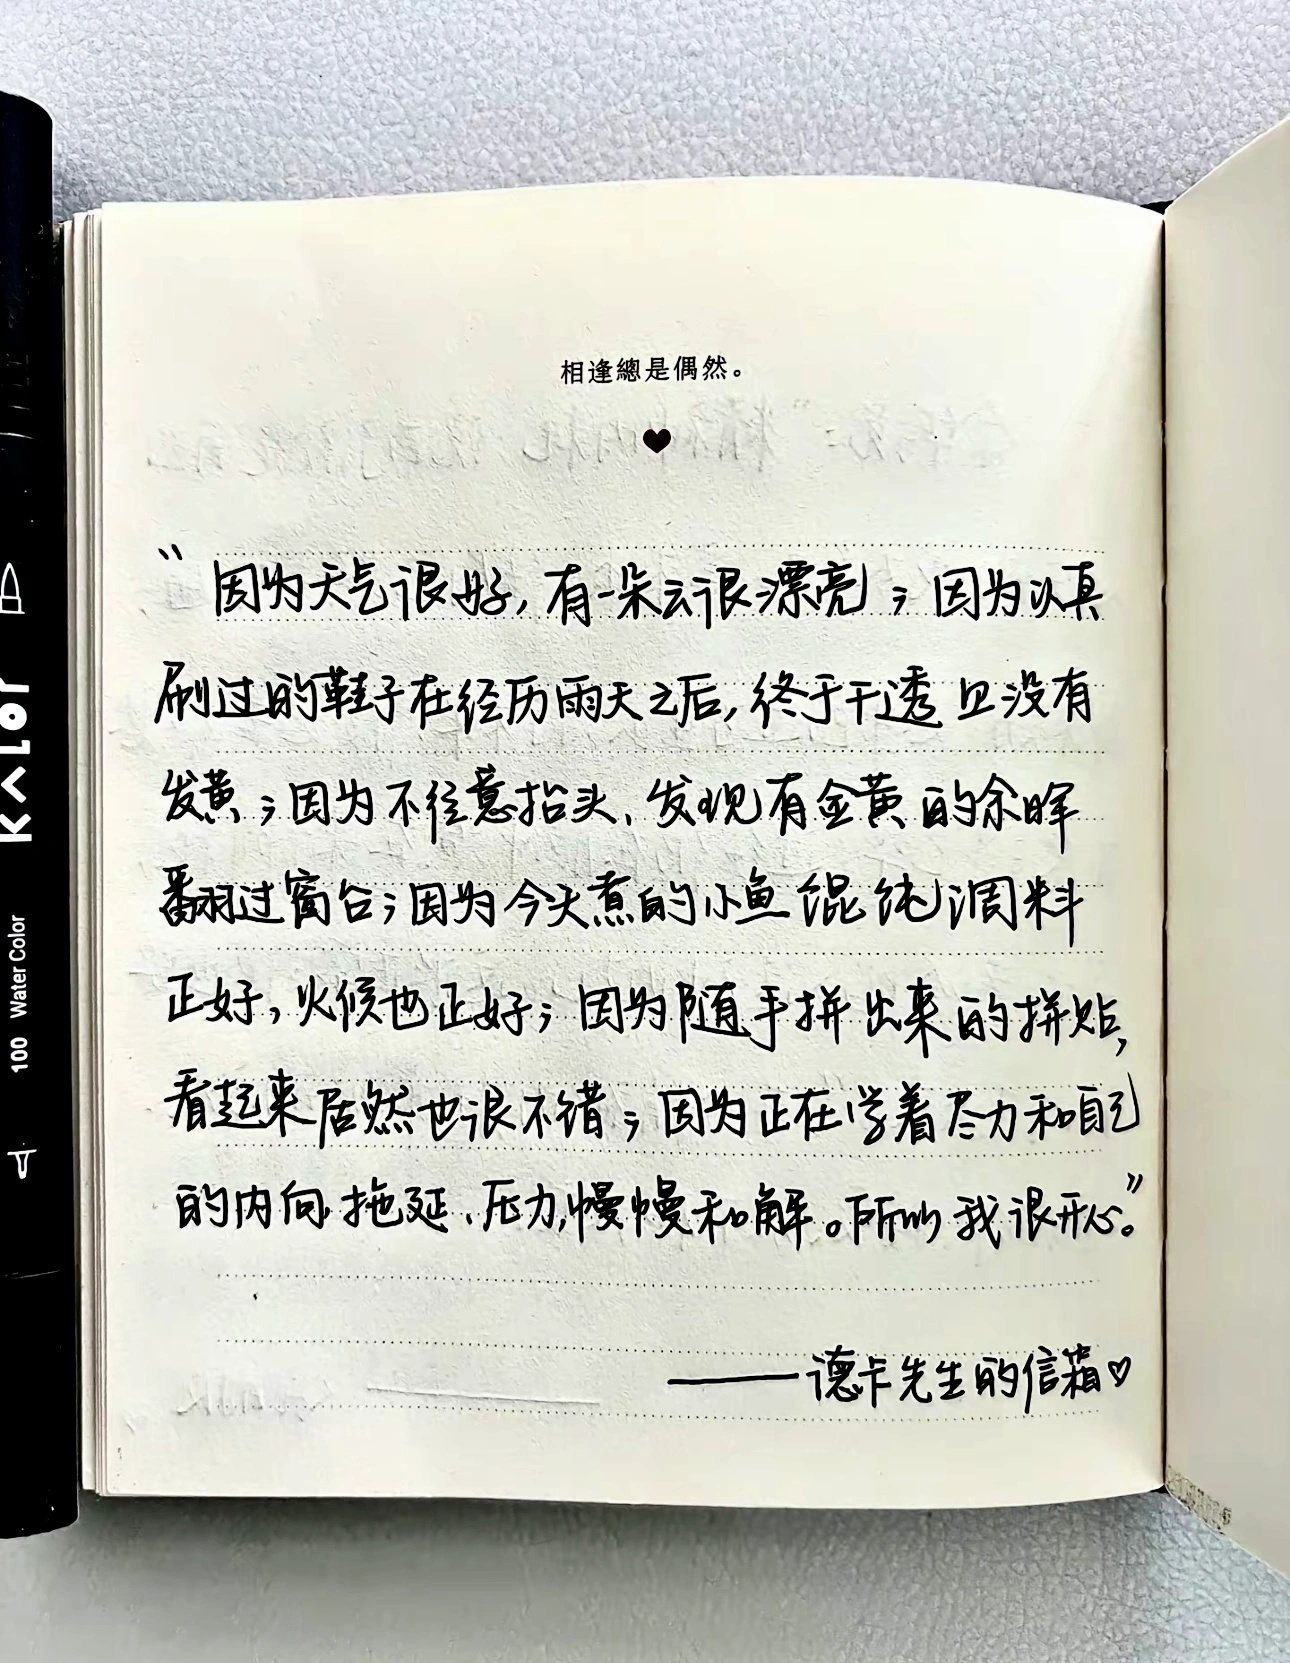 相逢總是偶然。
“因为天气很好，有一朵云很漂亮；因为认真
刷过的鞋子在经历雨天之后，终于干透且没有
发黄；因为不经意抬头、发现有金黄的余晖
翻过窗台；因为今天煮的小鱼馄饨调料
正好，火候也正好；因为随手拼出来的拼贴，
看起来居然也很不错；因为正在学着尽力和自己
的内向、拖延、压力，慢慢和解。所以我很开心。”
——德卡先生的信箱♡
KALOT
100 Water Color